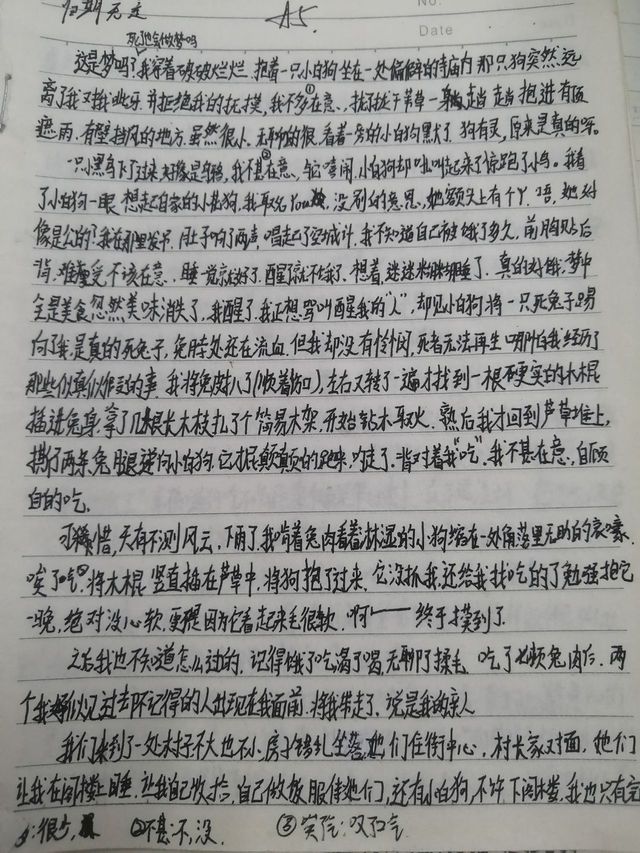 归期无定
A5.
No.
Date
死地会做梦吗
这是梦吗?我穿着破破烂烂,抱着一只小白狗坐在一处偏僻的寺庙内 那只狗突然远
离了我 又龇牙 并拒绝我的抚摸,我不多①在意,拢拢干草 一身 抱进有顶
遮雨,有壁挡风的地方.虽然很小,无聊的很.看着一旁的小白狗默了,狗有灵,原来是真的呀.
一只黑鸟下了过来,好像是乌鸦,我不甚②在意,与它嬉闹,小白狗却叫起来了惊跑了小鸟.我看
了小白狗一眼 想起自家的小 狗,我取名You,没别的意思,她额头上有个Y 唔,她对
像是公的?我在那里发呆.肚子响了两声,唱起了空城计,我不知道自己被饿了多久,前胸贴后
背,难受 不该在意,睡一觉就好了.醒了就不饿了.想着,迷迷糊糊睡了.真的好饿,梦中
全是美食忽然美味消失了,我醒了.我正想骂叫醒我的"人",却见小白狗将一只死兔子踢
向了我是真的死兔子,兔脖处还在流血.但我却没有怜悯,死者无法再生 哪怕我经历了
那些似真似假的事.我将兔皮扒了(顺着伤口),左右又转了一遍才找到一根硬实的木棍
插进兔身,拿了几根长木枝扎了个简易木架,开始钻木取火.熟后我才回到芦草堆上,
撕了两条兔腿递向小白狗.它才屁颠屁颠的跑来,叼走了.背对着我"吃".我不甚在意,自顾
自的吃.
可惜,天有不测风云,下雨了,我啃着兔肉看着淋湿的小狗缩在一处角落里无助的哀嚎.
唉了口气③,将木棍竖直插在芦草中,将狗抱了过来.它没抓我,还给我找吃的了 勉强抱它
一晚,绝对没心软,更是因为它看起来毛很软.啊—— 终于摸到了.
之后我也不知道怎么过的,记得饿了吃 渴了喝,无聊了揉毛.吃了 顿兔肉后,两
个我好似见过却不记得的人出现在我面前.将我带走了,说是我的亲人.
我们来到了一处村子 不大也不小,房子错乱坐落 她们住街中心,村长家对面,她们
让我在阁楼上睡.让我自己收拾,自己做饭服侍她们,还有小白狗,不许下阁楼,我也只有完
①:很少, ②不甚:不,没. ③哭气:叹口气